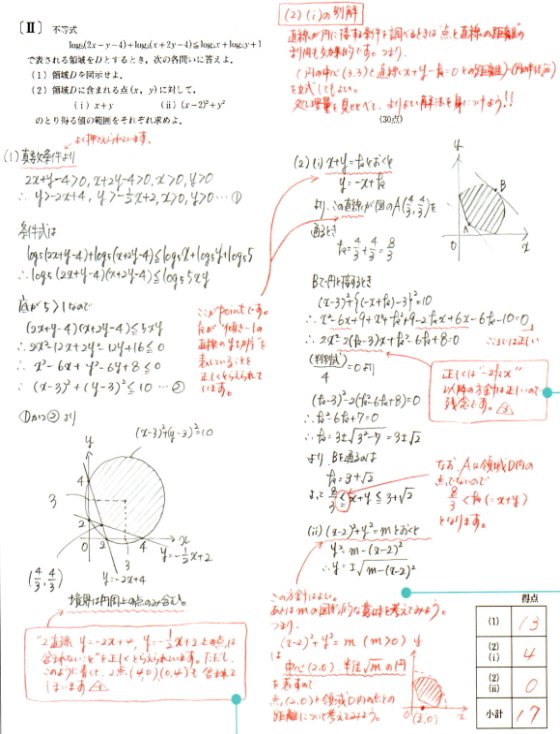 【Ⅱ】 不等式
log₅(2x－y－4)＋log₅(x＋2y－4)≦log₅x＋log₅y＋1
で表される領域をDとするとき，次の各問いに答えよ。
(1) 領域Dを図示せよ。
(2) 領域Dに含まれる点(x, y)に対して，
(i) x＋y (ii) (x－2)²＋y²
のとり得る値の範囲をそれぞれ求めよ。
(30点)
(2)(i)の別解
直線が円に接する条件を調べるときは"点と直線の距離"の
利用も効果的です。つまり、
(円の中心(3,3)と直線x+y-k=0との距離)=(円の半径√10)
を立式してもよい。
よく押さえられています。
(1) 真数条件より
2x+y-4>0, x+2y-4>0, x>0, y>0
∴ y>-2x+4, y>-1/2x+2, x>0, y>0 …①
条件式は
log₅(2x+y-4)+log₅(x+2y-4)≦log₅x+log₅y+log₅5
∴ log₅(2x+y-4)(x+2y-4)≦log₅5xy
底が5>1なので
(2x+y-4)(x+2y-4)≦5xy
∴ 2x²-12x+2y²-12y+16≦0
∴ x²-6x+y²-6y+8≦0
∴ (x-3)²+(y-3)²≦10 …②
①かつ②より
(x-3)²+(y-3)²=10
y
4
3
2
0
2
3
4
x
y=-1/2x+2
y=-2x+4
(4/3, 4/3)
境界は円周上の点のみ含む。
"2直線 y=-2x+4, y=-1/2x+2上の点は
含まれないこと"を正しくとらえられています。ただし、
このように書くと、2点(4,0)(0,4)も含まれて
しまいます
ここがpointです。
kが"傾き-1の
直線のy切片"を
表していることを
正しくとらえられて
います。
(2)(i) x+y=kとおくと
y=-x+k
より、この直線が図のA(4/3, 4/3)を
通るとき
k=4/3+4/3=8/3
Bで円と接するとき
(x-3)²+{(-x+k)-3}²=10
∴ x²-6x+9+x²+k²+9-2kx+6x-6k-10=0
∴ 2x²-2(k-3)x+k²-6k+8=0
ここまでは正しい
(判別式)/4=0より
(k-3)²-2(k²-6k+8)=0
∴ k²-6k+7=0
∴ k=3±√3²-7=3±√2
より、Bを通るのは
k=3+√2
よって 8/3≦x+y≦3+√2
y
A
B
0
x
正しくは"-2kx"
以降の方針は正しいので
残念です。
なお、Aは領域D内の
点でないので
8/3<k(=x+y)
となります。
(ii) (x-2)²+y²=mとおくと
y²=m-(x-2)²
∴ y=±√m-(x-2)²
この方針はよい。
あとはmの図形的な意味を考えてみよう。
つまり、
(x-2)²+y²=m (m>0)
は
中心(2,0)、半径√mの円
を表すので
点(2,0)と領域D内の点との
距離について考えてみよう。
y
0
(2,0)
x
得点
(1) 13
(2)(i) 4
(2)(ii) 0
小計 17